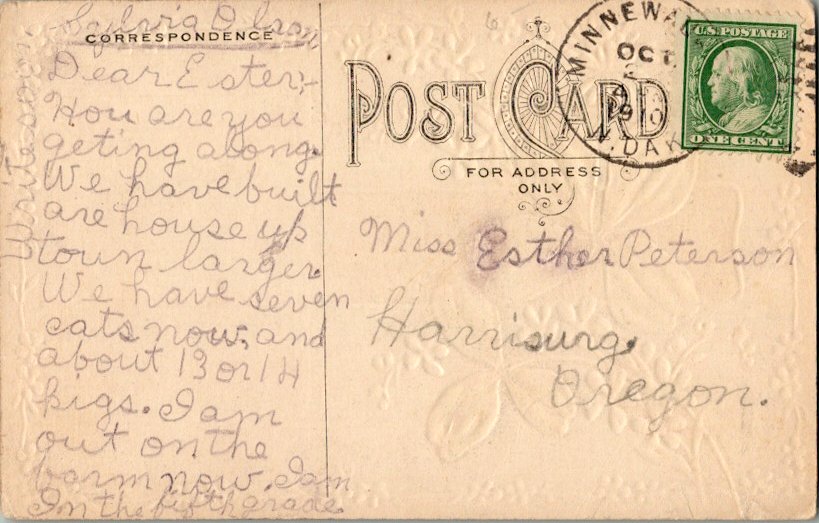 Sylvia Olson
CORRESPONDENCE
Dear Ester:-
How are you
geting along.
We have built
are house up
town larger.
We have seven
cats now, and
about 13 or 14
pigs. I am
out on the
farm now. I am
In the fifth grade.
Write soon
POST CARD
FOR ADDRESS
ONLY
MINNEWAU
OCT
2
1910
N. DAK
U.S. POSTAGE
ONE CENT
Miss Esther Peterson
Harrisurg.
Oregon.